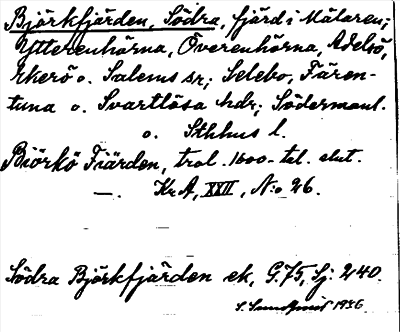 Björkfjärden, Södra, fjärd i Mälaren;
Ytterenhörna, Överenhörna, Adelsö,
Ekerö o. Salems sr; Selebo, Fären-
tuna o. Svartlösa hdr; Södermanl.
o. Sthlms l.
Biörkö Fiärden, trol. 1600-tal. slut.
—. Kr A, XXII, N:o 26.
Södra Björkfjärden ek, G. 75, Sj: 240.
1936